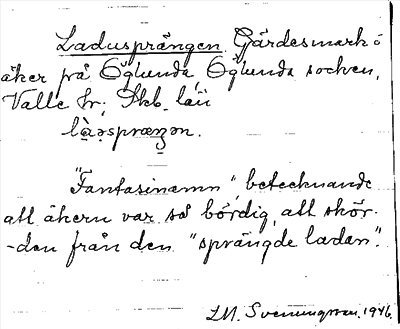 Ladusprängen. Gärdesmark o
åker på Öglunda, Öglunda socken,
Valle hr; Skb. län
là̤ə̤spræŋən.
"Fantasinamn", betecknande
att åkern var så bördig, att skör-
-den från den "sprängde ladan".
LM. Svenungsson. 1946.